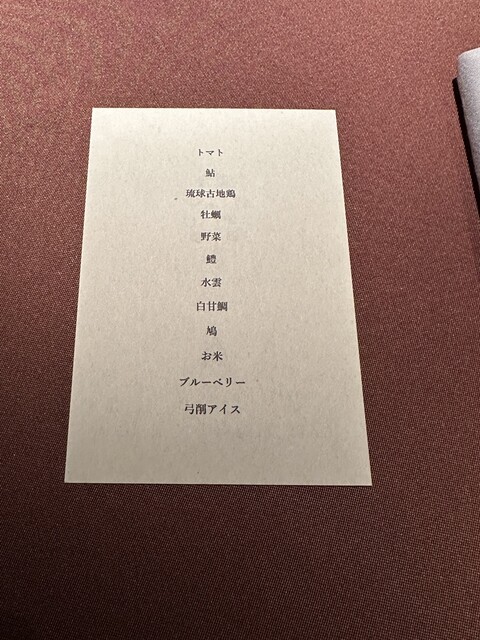 トマト
鮎
琉球古地鶏
牡蠣
野菜
鱧
水雲
白甘鯛
鳩
お米
ブルーベリー
弓削アイス